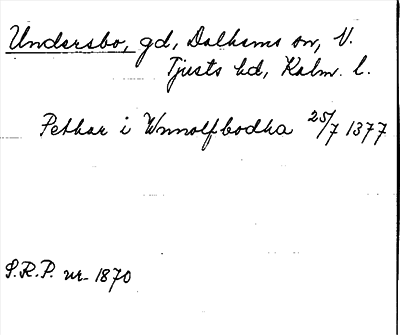 Undersbo, gd, Dalhems sn, N.
Tjusts hd, Kalm. l.
Pethar i Wnnolfbodha 25/7 1377
S.R.P. nr 1870